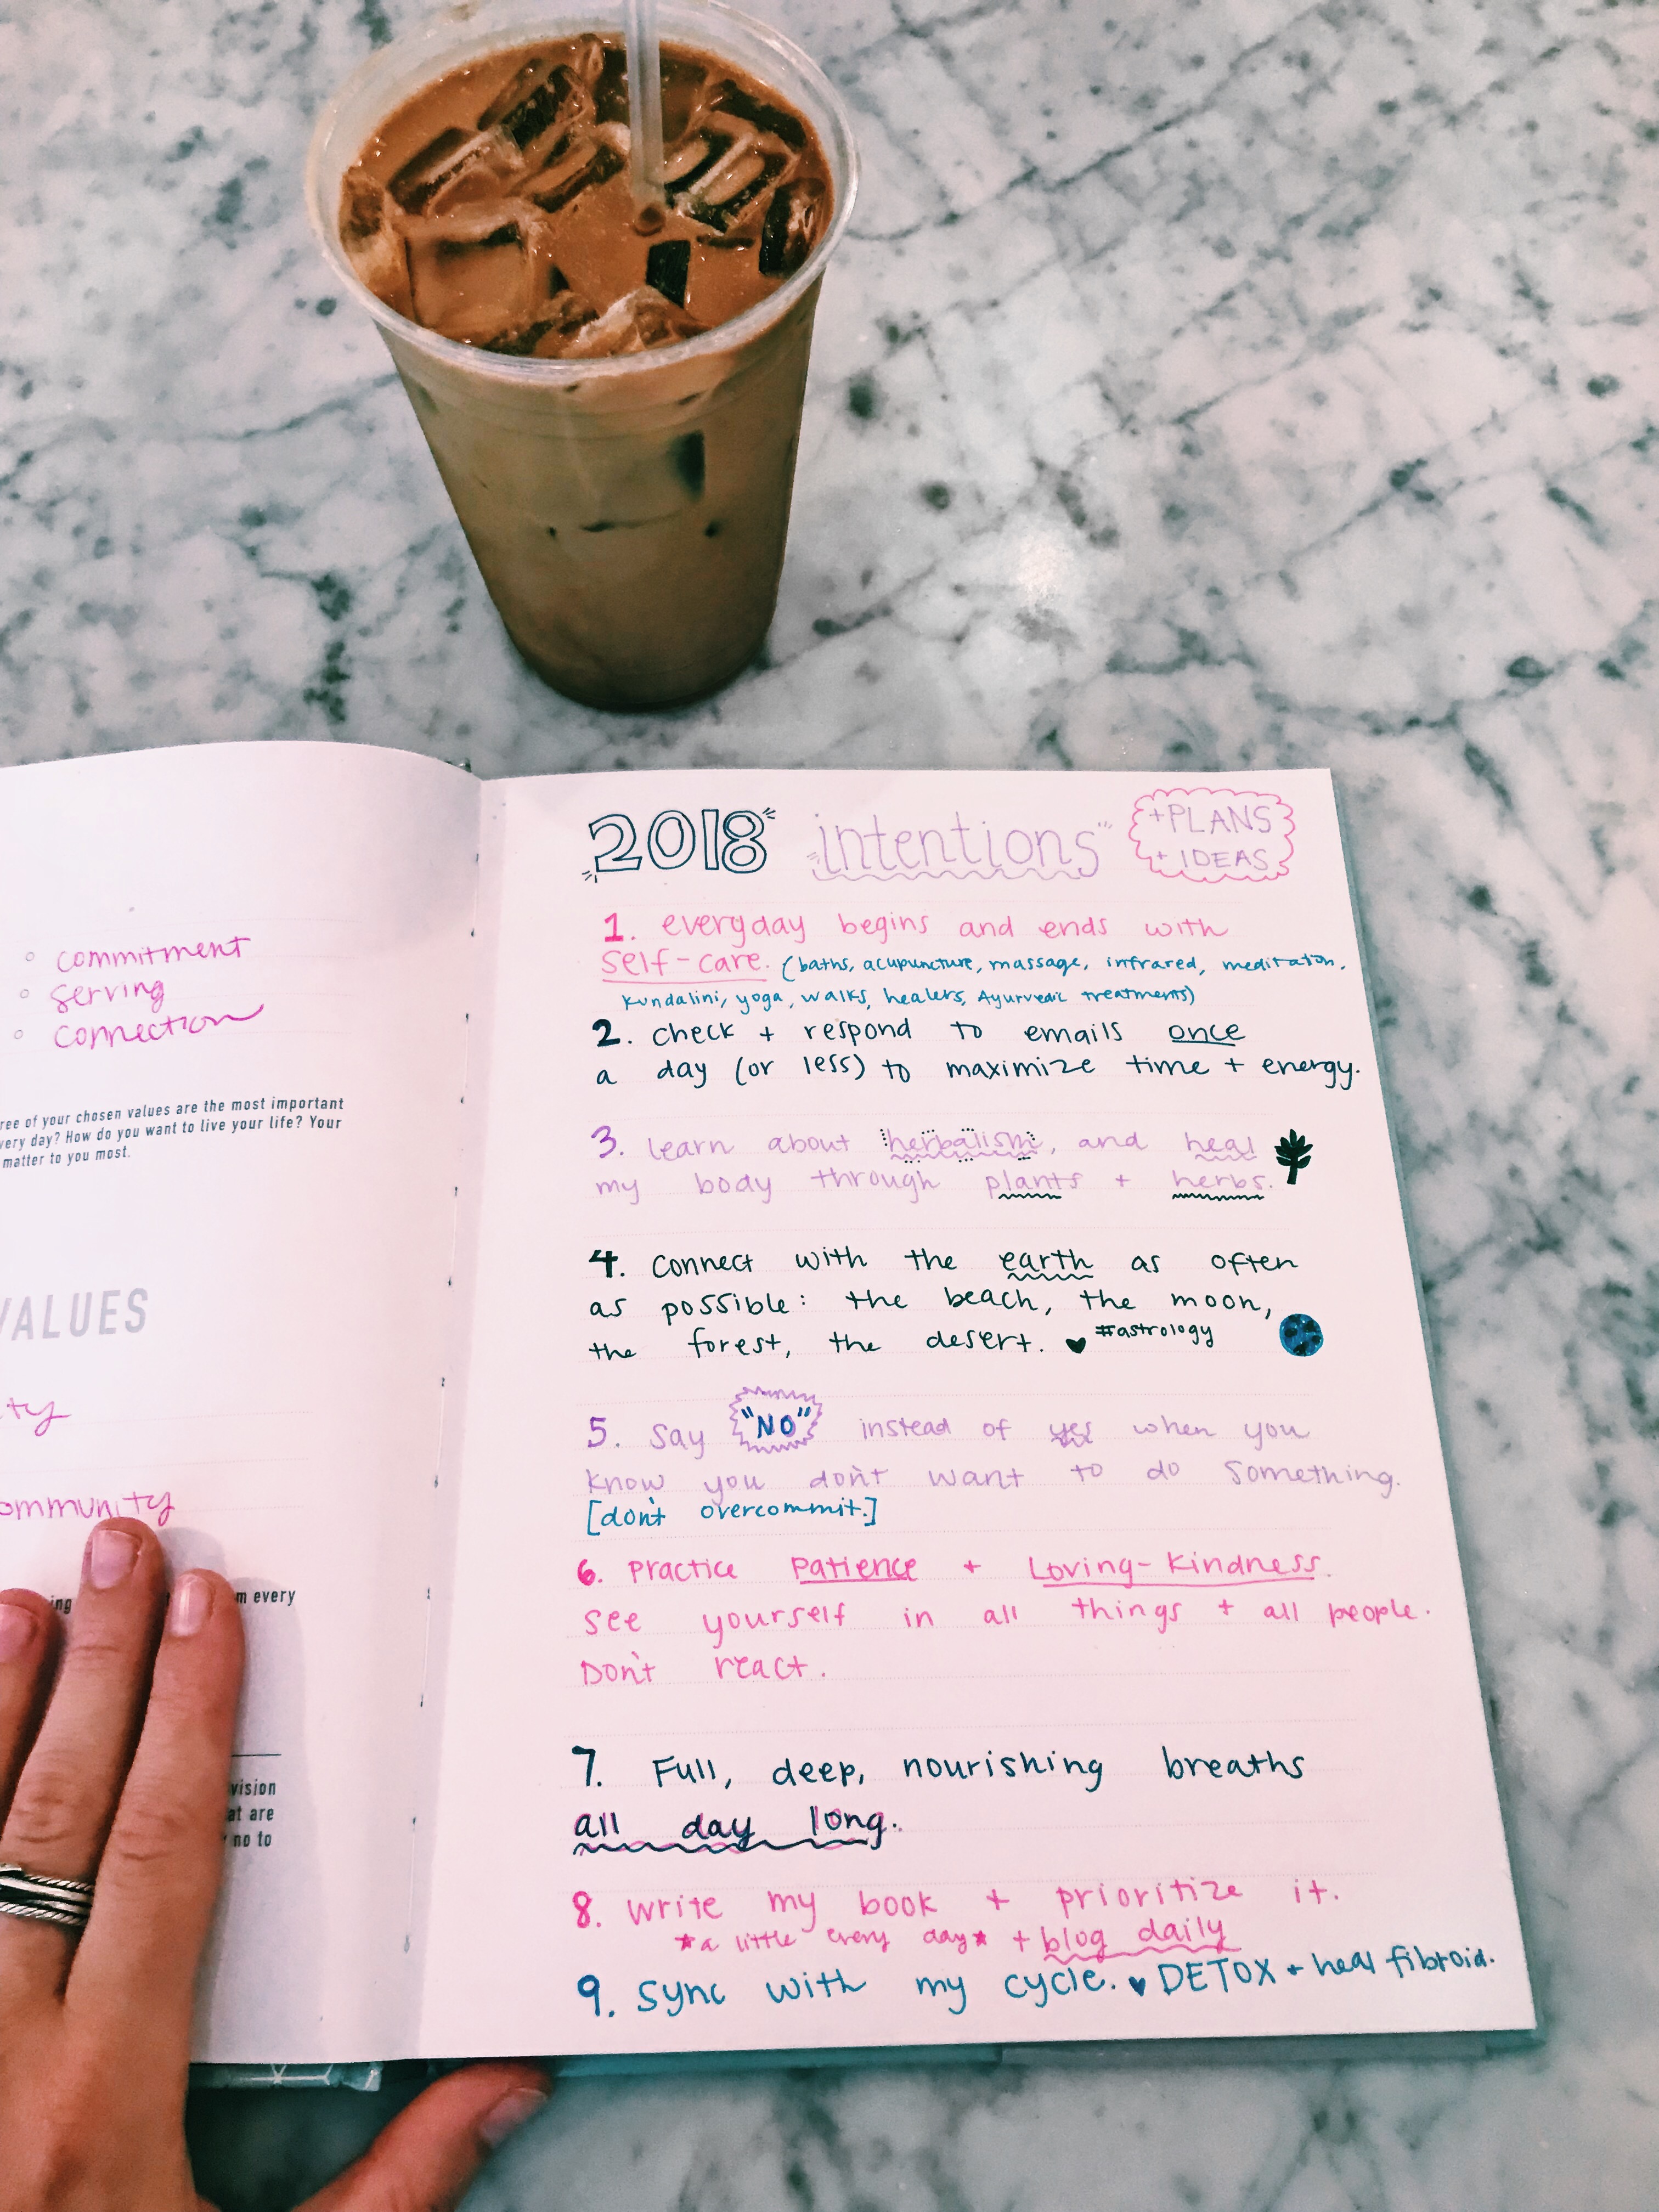 commitment
serving
connection
ree of your chosen values are the most important
very day? How do you want to live your life? Your
matter to you most.
VALUES
ty
ommunity
ing m every
vision
at are
no to
2018 intentions +PLANS
+ IDEAS
1. everyday begins and ends with
self-care. (baths, acupuncture, massage, infrared, meditation,
kundalini, yoga, walks, healers, Ayurvedic treatments)
2. check + respond to emails once
a day (or less) to maximize time + energy.
3. learn about herbalism, and heal
my body through plants + herbs.
4. connect with the earth as often
as possible: the beach, the moon,
the forest, the desert. ♥ #astrology
5. Say "NO" instead of yes when you
know you don't want to do something.
[don't overcommit.]
6. Practice Patience + Loving-Kindness.
See yourself in all things + all people.
Don't react.
7. Full, deep, nourishing breaths
all day long.
8. write my book + prioritize it.
*a little every day* + blog daily
9. Sync with my cycle. ♥ DETOX + heal fibroid.